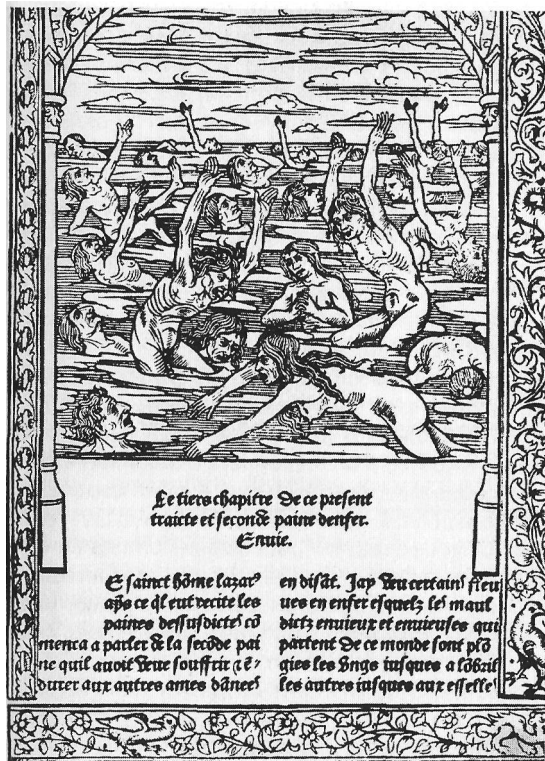 Le tiers chapitre de ce present
traicte et seconde paine denfer.
Enuie.
E sainct hõme lazar⁹
apṡ ce q̃l eut recite les
paines dessusdictes cõ
menca a parler de la secõde pai
ne quil auoit veue souffrir ⁊ ẽ⸗
durer aux autres ames dãnees
en disãt. Jay veu certains fleu
ues en enfer esquelz les maul
dictz enuieux et enuieuses qui
partent de ce monde sont plõ
gies les vngs iusques a lõbril
les autres iusques aux esselles